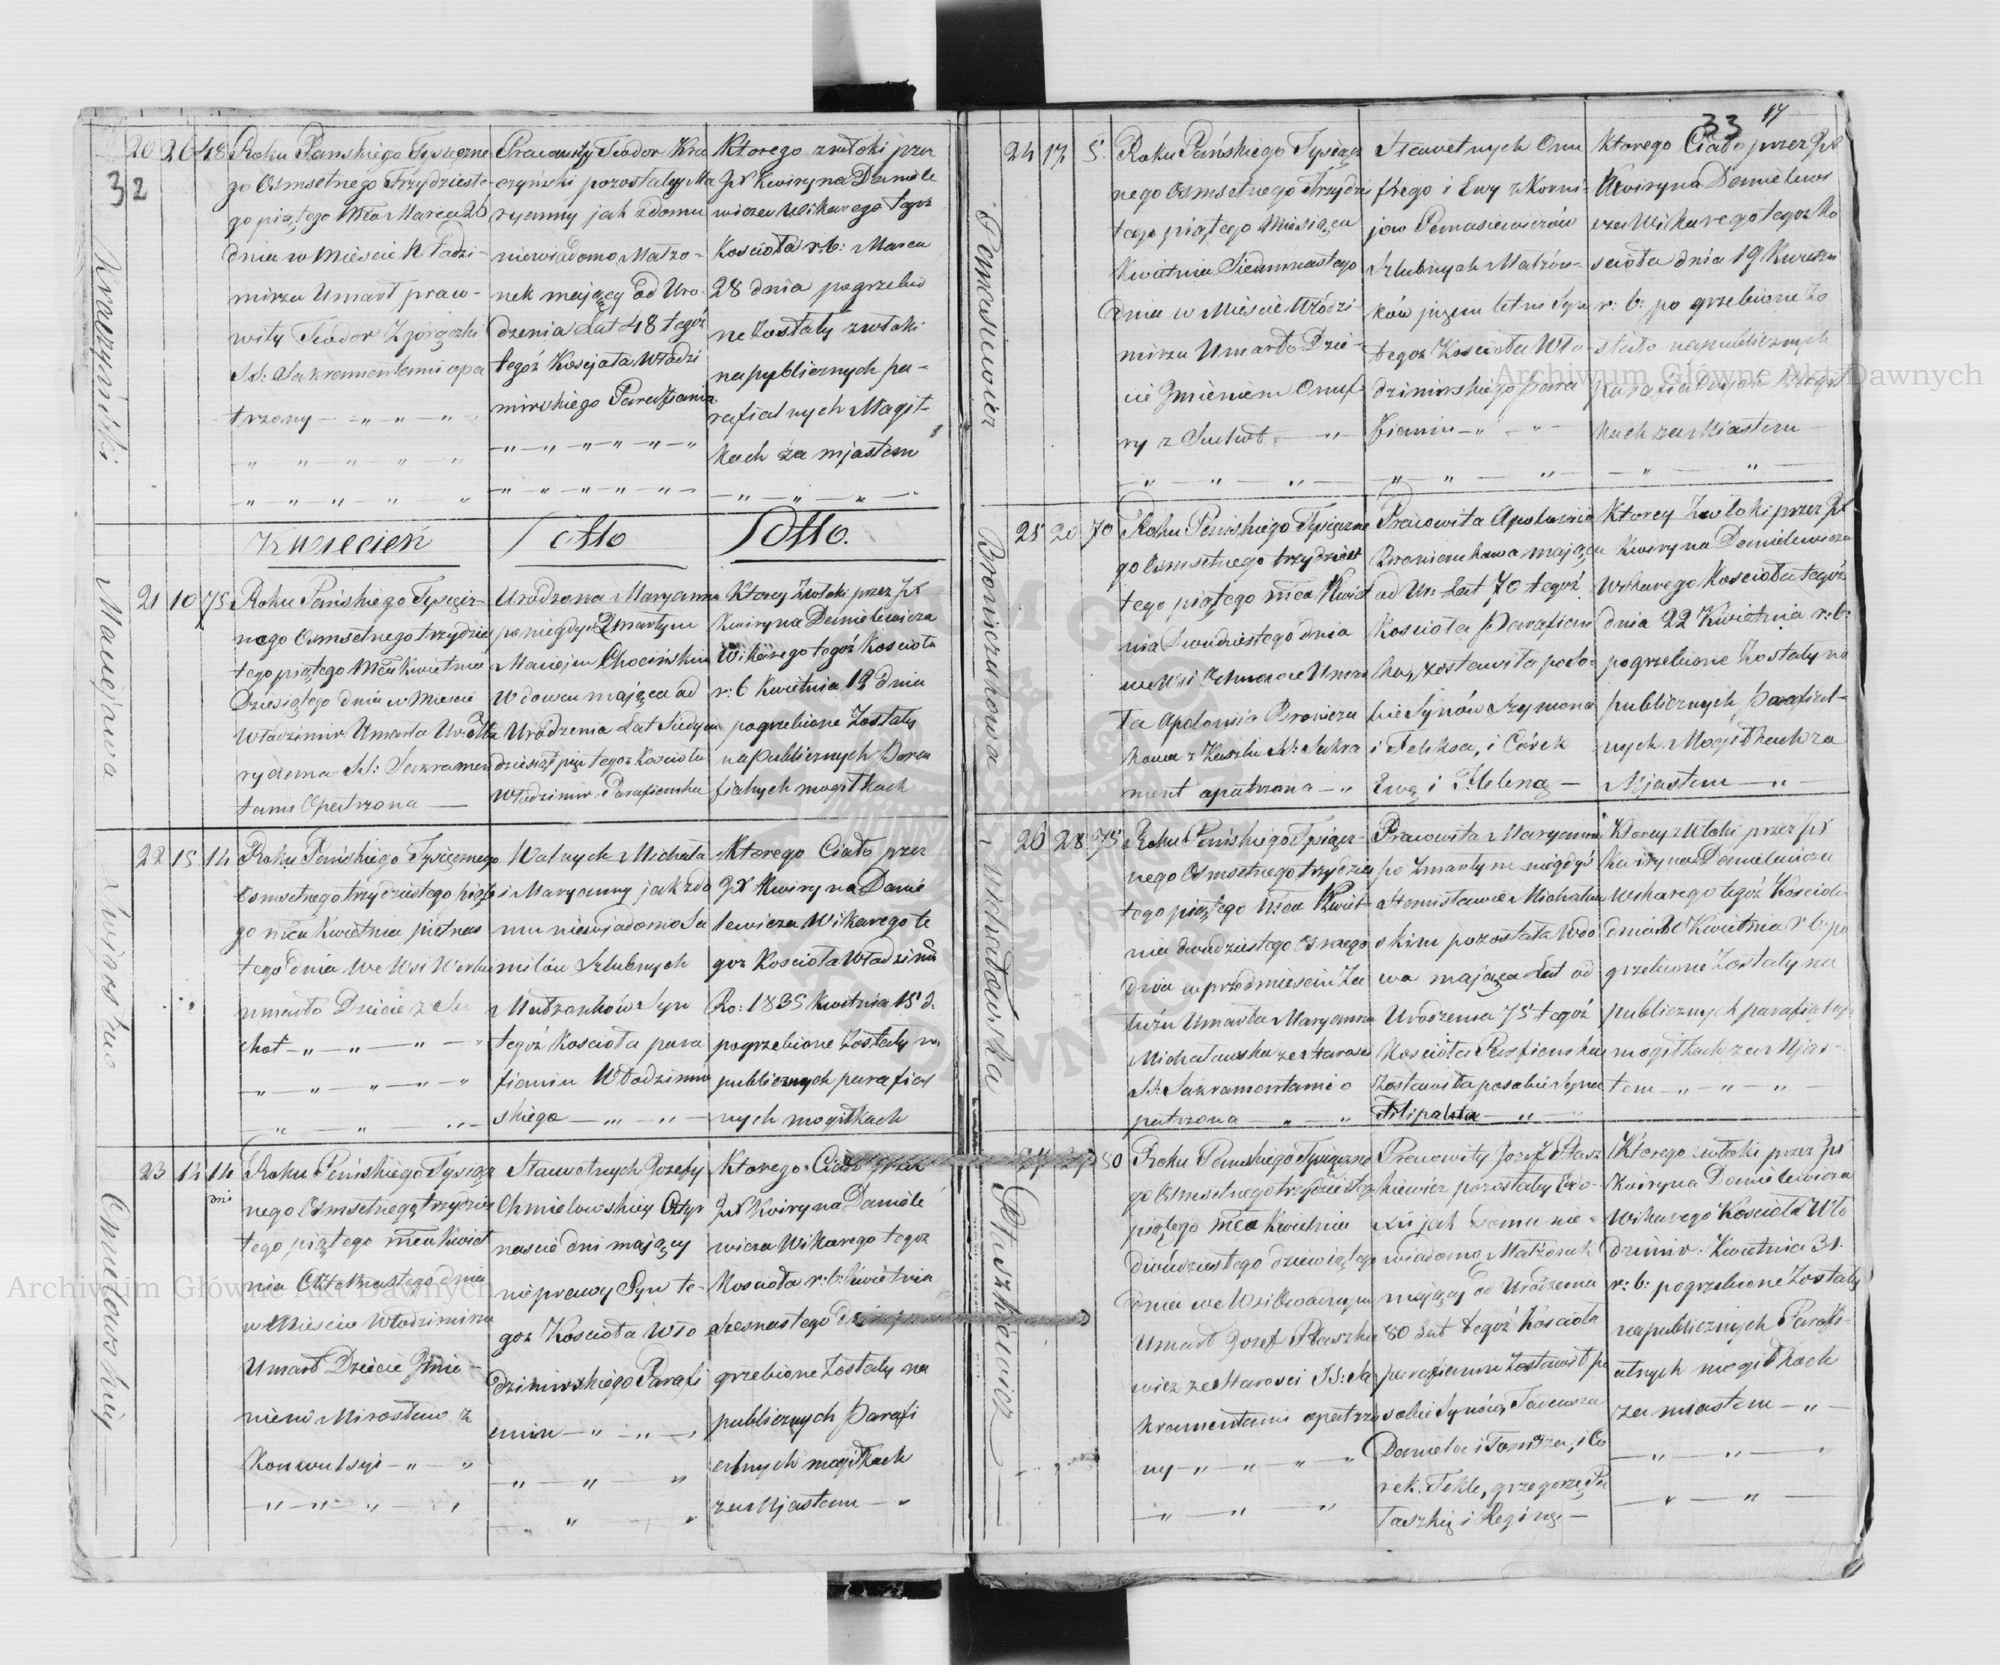 32
Kraczyński
20 26 48
Roku Pańskiego Tysięczne
go Osmsetnego Trzydzieste
go piątego Mca Marca 26
dnia w Mieście Włodzi-
mirzu Umarł praw-
wity Teodor Zgorączki
SS: Sakramentami opa
trzony
Pracowity Teodor Kra
czyński pozostałey Ma
ryanny jak zdomu
niewiadomo Małżo-
nek mający od Uro-
dzenia Lat 48 tegoż
tegoż Kościoła Włodzi
mirskiego Parafianin
Ktorego zwłoki przez
JX Kwiryna Daniele
wicza Wikarego tegoż
Kościoła r: b: Marca
28 dnia pogrzebio
ne Zostały zwłoki
na publicznych pa-
rafialnych Mogił-
kach za miastem
Kwiecień
Maciejowa
21 10 75
Roku Pańskiego Tysięcz-
nego Osmsetnego trzydzies
tego piątego Mca Kwietnia
Dziesiątego dnia w Mieście
Włodzimir. Umarła
ryanna SS: Sakramen
tami Opatrzona
Urodzona Maryanna
po niegdyś Zmarłym
Macieju Chocińskim
Wdowa mająca od
Urodzenia Lat Siedym
dziesiąt pięć tegoż Kościoła
Włodzimir. Parafianka
Ktorey Zwłoki przez JX
Kwiryna Danielewicza
Wikarego tegoż Kościoła
r: b Kwietnia 12 dnia
pogrzebione Zostały
na publicznych Para
fialnych mogiłkach
22 15 14
Roku Pańskiego Tysięcznego
Osmsetnego trzydziestego piąte
go mca Kwietnia piętnas
tego dnia We Wsi
umarło Dziecie z Su
chot
Wolnych Michała
i Maryanny jak zdo
mu niewiadomo Sa
milów Szlubnych
Małżonków Syn
tegoż Kościoła para
fianin Włodzimir
skiego
Ktorego Ciało przez
JX Kwiryna Danie
lewicza Wikarego te
goż Kościoła Włodzimir
Ro: 1835 Kwietnia 15 d.
pogrzebione Zostały na
publicznych parafial
nych mogiłkach
Chmielowskiy
23 14 14
dni
Roku Pańskiego Tysiącz
nego Osmsetnego trzydzies
tego piątego mca Kwiet
nia Czternastego dnia
w Mieście Włodzimirzu
Umarł Dziecie Jmie-
niem Mirosław z
Konwulsyi
Sławetnych Jozefy
Chmielowskiey Czter
naście dni mający
nieprawy Syn te-
goż Kościoła Wło
dzimirskiego Parafi
anin
Ktorego Ciało przez
JX Kwiryna Daniele
wicza Wikarego tegoż
Kościoła r: b: Kwietnia
Szesnastego
grzebione Zostały na
publicznych Parafi
alnych mogiłkach
za Mjastem
33
17
Pomasiewicz
24 17 5
Roku Pańskiego Tysiącz
nego Osmsetnego Trzydzi
tego piątego Miesiąca
Kwietnia Siedmnastego
Dnia w Mieście Włodzi
mirzu Umarło Dzie-
cie Jmieniem Onuf
ry z Suchot
Sławetnych Onu
frego i Ewy z Korni-
jow Pomasiewiczów
Szlubnych Małżon-
ków Syn
tegoż Kościoła Wło-
dzimirskiego para
fianin
Ktorego Ciało przez JX
Kwiryna Danielewi
cza Wikarego tegoż Ko
ścioła dnia 19 Kwietnia
r: b: pogrzebione Zo
stało na publicznych
parafialnych Mogił
kach za Miastem
Broniczukowa
25 20 70
Roku Pańskiego Tysiączne
go Osmsetnego trzydziest
tego piątego mca Kwiet
nia Dwudziestego dnia
we Wsi Umar
ła Apolonia Broniczu
kowa z Kaszlu SS: Sakra
ment opatrzona
Pracowita Apolonia
Broniczukowa mająca
od Ur: Lat 70 tegoż
Kościoła Parafian
ka, zostawiła po so-
bie Synów Szymona
i Feliksa, i Córek
Ewę i Helenę
Ktorey Zwłoki przez JX
Kwiryna Danielewicza
Wikarego Kościoła tegoż
dnia 22 Kwietnia r: b:
pogrzebione Zostały na
publicznych parafial-
nych Mogiłkach za
Mjastem
Michałowska
26 28 75
Roku Pańskiego Tysiącz-
nego Osmsetnego trzydzies
tego piątego mca Kwiet-
nia dwudziestego osmego
dnia w przedmieściu Za
łużu Umarła Maryanna
Michałowska ze starości
SS: Sakramentami o
patrzona
Pracowita Maryanna
po Zmarłym niegdyś
Stanisławie Michałow
skim pozostała Wdo
wa mająca Lat od
Urodzenia 75 tegoż
Kościoła Parfianka
Zostawiła po sobie Syna
Filipa
Ktorey zwłoki przez JX
Kwiryna Danielewicza
Wikarego tegoż Kościoła
dnia Kwietnia r: b: po
grzebione Zostały na
publicznych parafialny
mogiłkach za Mjas-
tem
Ptaszkiewicz
27 29 80
Roku Pańskiego Tysiączne
go Osmsetnego trzydziesteg
piątego mca Kwietnia
dwódziestego dziewiątego
dnia we Wsi
Umarł Jozef Ptaszkie
wicz ze starości SS: Sa
kramentami opatrzo
ny
Pracowity Jozef Ptasz
kiewicz pozostałey
jak zdomu nie-
wiadomo Małżonek
mający od Urodzenia
80 Lat tegoż Kościoła
parafianin Zostawił po
sobie Synów, Tadeusza
Daniela i Tomsza, i Có
rek. Teklę, grzegorzę Pa
raszkię i Reginę
Ktorego zwłoki przez JX
Kwiryna Danielewicza
Wikarego Kościoła Wło
dzimir. Kwietnia 31.
r: b: pogrzebione Zostały
na publicznych Parafi-
alnych mogiłkach
za miastem
Archiwum Główne Akt Dawnych
Archiwum Główne Akt Dawnych